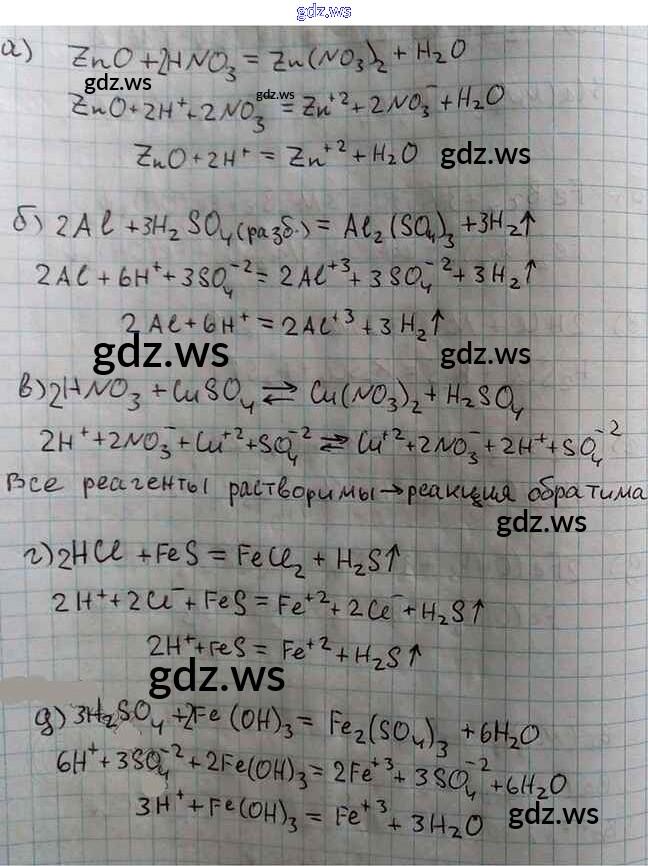 gdz.ws
а) ZnO + 2HNO₃ = Zn(NO₃)₂ + H₂O
gdz.ws
gdz.ws
ZnO + 2H⁺ + 2NO₃⁻ = Zn⁺² + 2NO₃⁻ + H₂O
ZnO + 2H⁺ = Zn⁺² + H₂O
gdz.ws
б) 2Al + 3H₂SO₄(разб.) = Al₂(SO₄)₃ + 3H₂↑
2Al + 6H⁺ + 3SO₄⁻² = 2Al⁺³ + 3SO₄⁻² + 3H₂↑
2Al + 6H⁺ = 2Al⁺³ + 3H₂↑
gdz.ws
gdz.ws
в) 2HNO₃ + CuSO₄ ⇄ Cu(NO₃)₂ + H₂SO₄
2H⁺ + 2NO₃⁻ + Cu⁺² + SO₄⁻² ⇄ Cu⁺² + 2NO₃⁻ + 2H⁺ + SO₄⁻²
Все реагенты растворимы → реакция обратима
gdz.ws
г) 2HCl + FeS = FeCl₂ + H₂S↑
2H⁺ + 2Cl⁻ + FeS = Fe⁺² + 2Cl⁻ + H₂S↑
2H⁺ + FeS = Fe⁺² + H₂S↑
gdz.ws
gdz.ws
д) 3H₂SO₄ + 2Fe(OH)₃ = Fe₂(SO₄)₃ + 6H₂O
6H⁺ + 3SO₄⁻² + 2Fe(OH)₃ = 2Fe⁺³ + 3SO₄⁻² + 6H₂O
3H⁺ + Fe(OH)₃ = Fe⁺³ + 3H₂O
gdz.ws